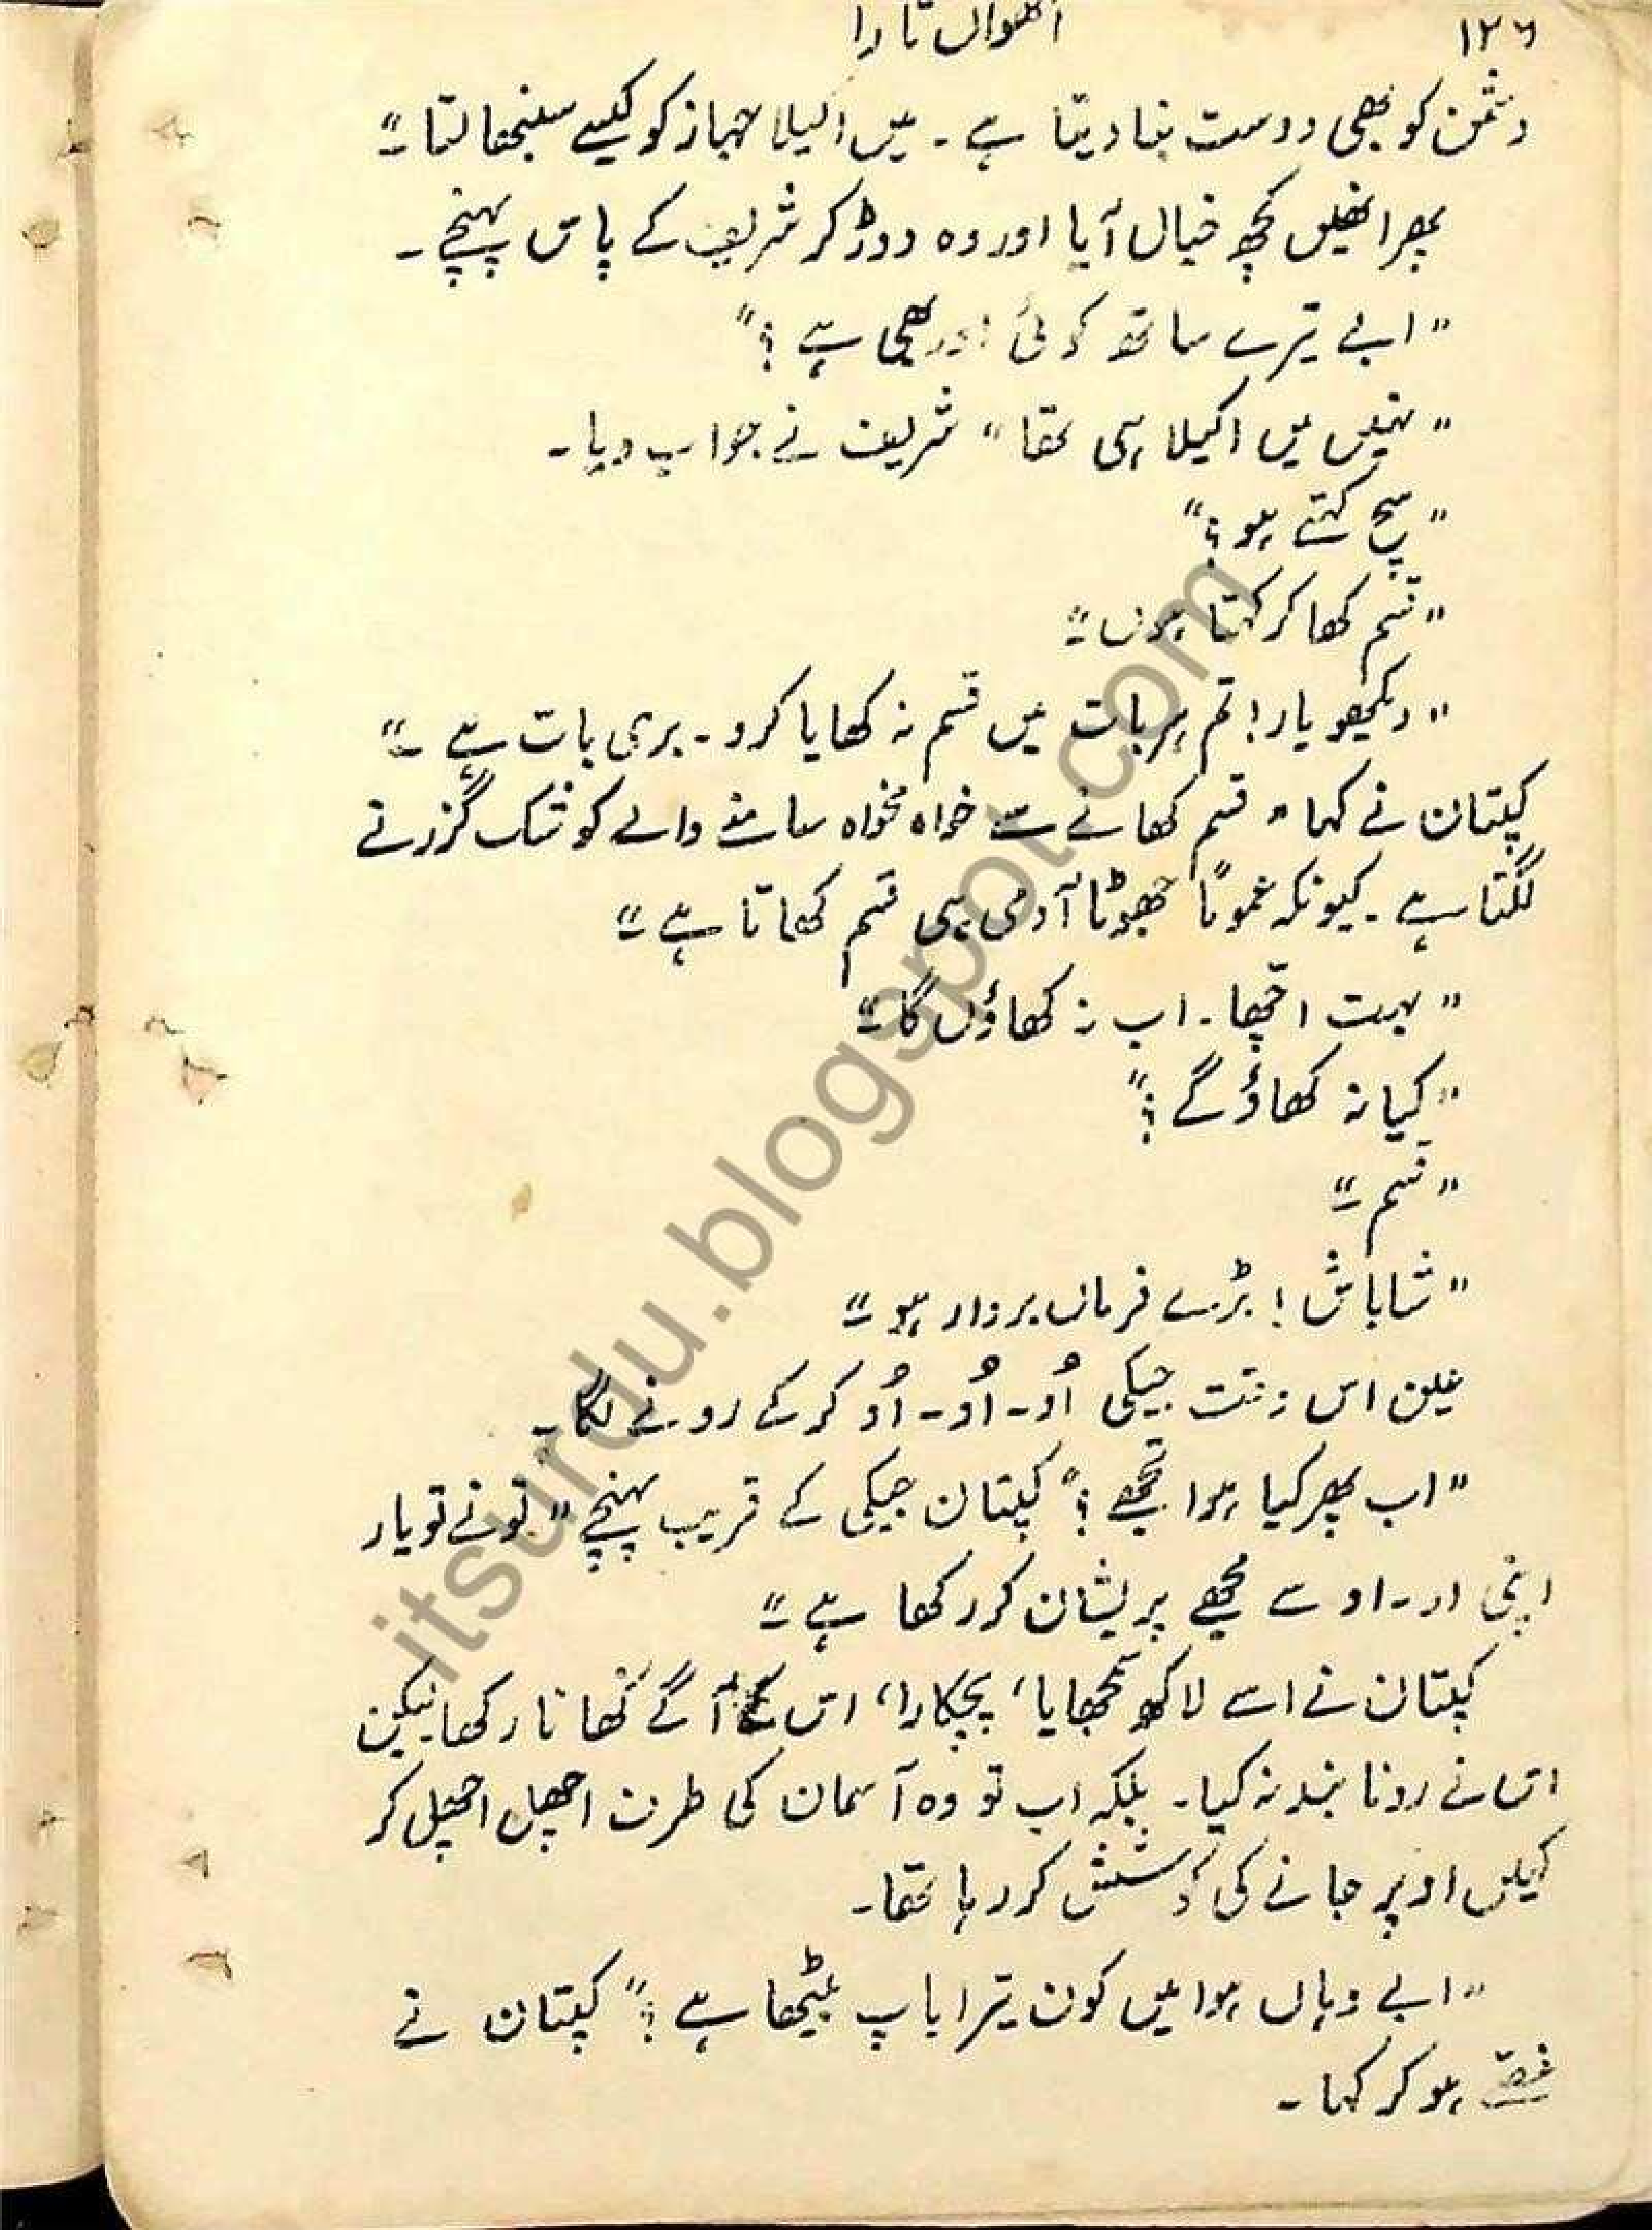 ۱۲۶
آٹھواں تارا
دشمن کو بھی دوست بنا دیتا ہے۔ میں اکیلا جہاز کو کیسے سنبھالتا ۔"
پھر انھیں کچھ خیال آیا اور وہ دوڑ کر شریف کے پاس پہنچے۔
"ابے تیرے ساتھ کوئی اور بھی ہے ؟"
"نہیں میں اکیلا ہی تھا" شریف نے جواب دیا۔
"سچ کہتے ہو؟"
"قسم کھا کر کہتا ہوں ۔"
"دیکھو یار! تم ہر بات میں قسم نہ کھایا کرو۔ بری بات ہے ۔"
کپتان نے کہا "قسم کھانے سے خواہ مخواہ سامنے والے کو شک گزرنے
لگتا ہے۔ کیونکہ عموماً جھوٹا آدمی ہی قسم کھاتا ہے ۔"
"بہت اچھا۔ اب نہ کھاؤں گا ۔"
"کیا نہ کھاؤ گے ؟"
"قسم ۔"
"شاباش! بڑے فرماں بردار ہو ۔"
عین اس وقت جیکی اُو۔ اُو۔ اُو کر کے رونے لگا۔
"اب پھر کیا ہوا تجھے ؟" کپتان جیکی کے قریب پہنچے "تو نے تو یار
اپنی او۔ او سے مجھے پریشان کر رکھا ہے ۔"
کپتان نے اسے لاکھ سمجھایا، پچکارا، اس کے آگے کھانا رکھا لیکن
اس نے رونا بند نہ کیا۔ بلکہ اب تو وہ آسمان کی طرف اچھل اچھل کر
کہیں اوپر جانے کی کوشش کر رہا تھا۔
"ابے وہاں ہوا میں کون تیرا باپ بیٹھا ہے ؟" کپتان نے
غصے ہو کر کہا۔
itsurdu.blogspot.com